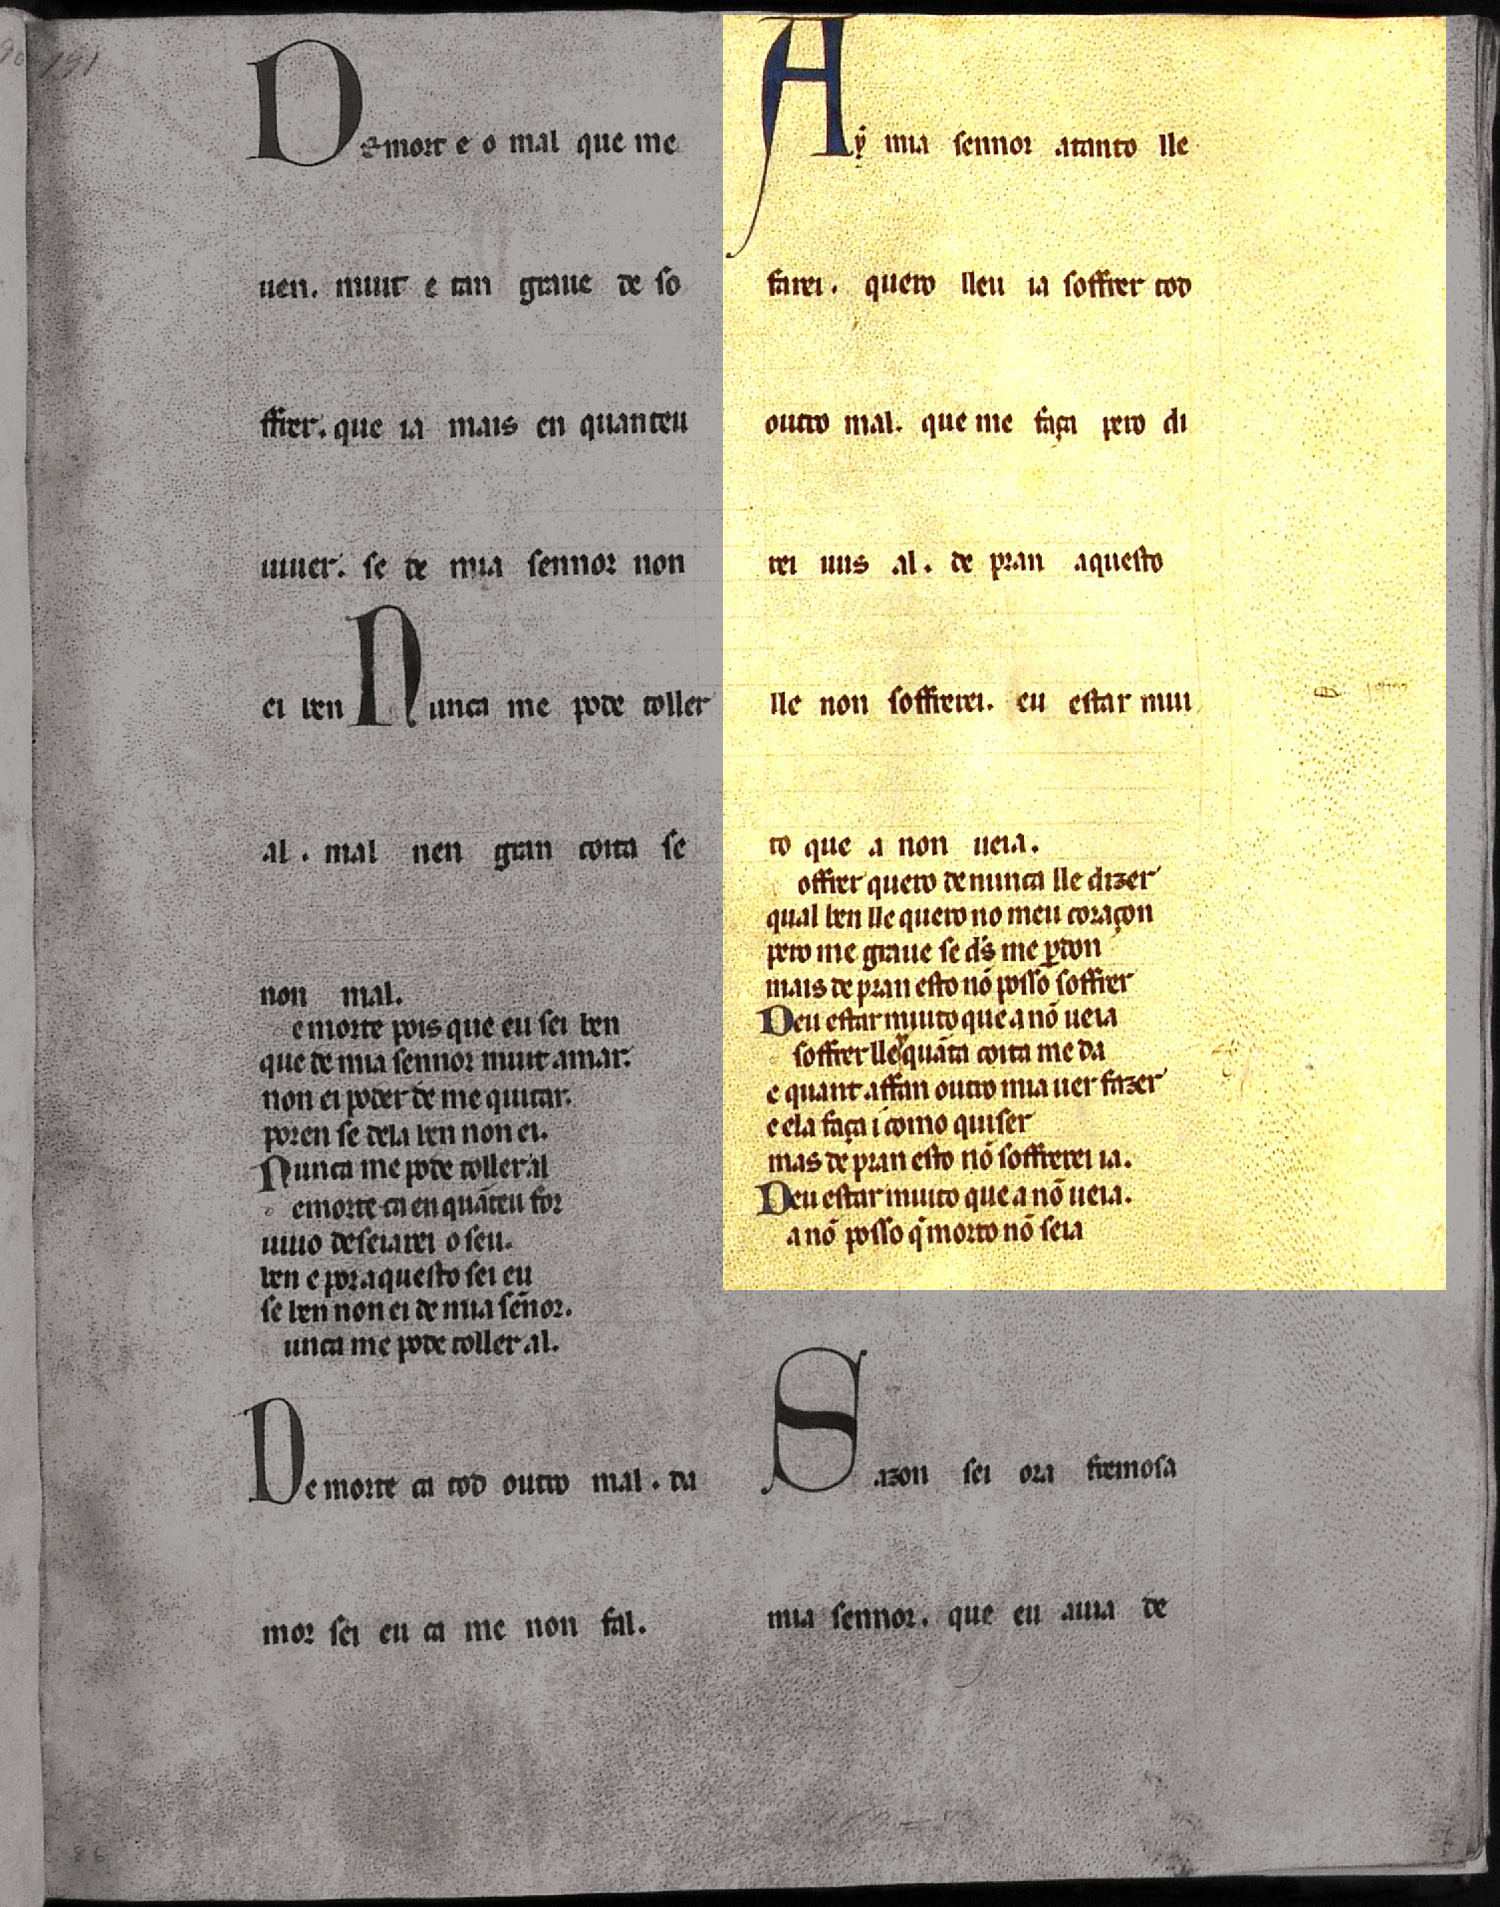 191
Demort e o mal que me
uen. muit e tan graue de so
ffrer. que ia mais en quanteu
uiuer. se de mia sennor non
ei ben Nunca me pode toller
al. mal nen gran coita se
non mal.
emorte pois que eu sei ben
que de mia sennor muit amar.
non ei poder de me quitar.
poren se dela ben non ei.
Nunca me pode toller al
emorte ca en quãteu for
uiuo deseiarei o seu.
ben e por aquesto sei eu
se ben non ei de mia señor.
unca me pode toller al.
De morte ca tod outro mal. da
mor sei eu ca me non fal.
Aẏ mia sennor atanto lle
farei. quero lleu ia soffrer tod
outro mal. que me faça pero di
rei uus al. de pran aquesto
lle non soffrerei. eu estar mui
to que a non ueia.
offrer quero de nunca lle dizer
qual ben lle quero no meu coraçon
pero me graue se ds̃ me ꝑdon
mais de pran esto nõ posso soffrer
Deu estar muito que a nõ ueia
soffrer lle quãta coita me da
e quant affan outro mia uer fazer
e ela faça i como quiser
mas de pran esto nõ soffrerei ia.
Deu estar muito que a nõ ueia.
a nõ posso q̃ morto nõ seia
Sazon sei ora fremosa
mia sennor. que eu auia de